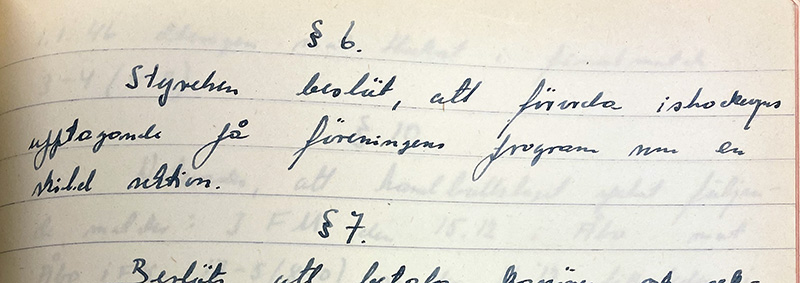 § 6.
Styrelsen beslöt, att förorda ishockeyns
upptagande på föreningens program som en
skild sektion.
§ 7.
Beslöts att betala